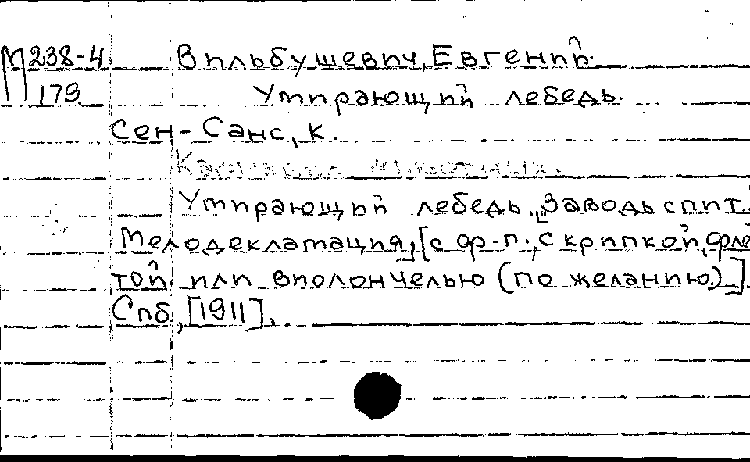 М238-4 Вильбушевич, Евгений.
179 Умирающий лебедь.
Сен-Санс, К.
Умирающий лебедь. „Заводь спит.
Мелодекламация, [с фр-п., скрипкой, фле
той или виолончелью (по желанию)]
Спб, [1911].